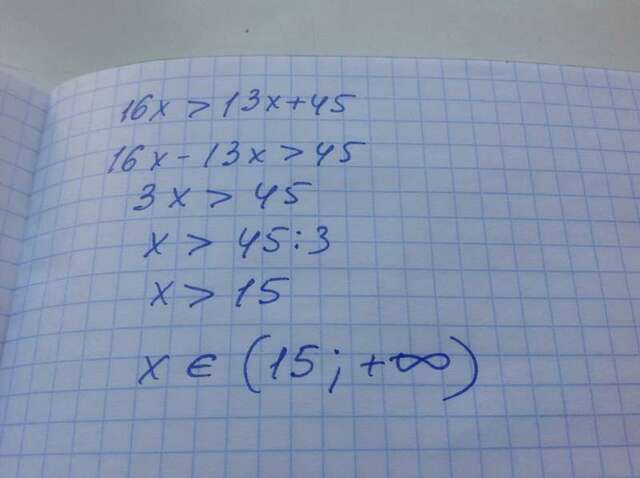 16x > 13x+45
16x - 13x > 45
3x > 45
x > 45:3
x > 15
x ∈ (15; +∞)